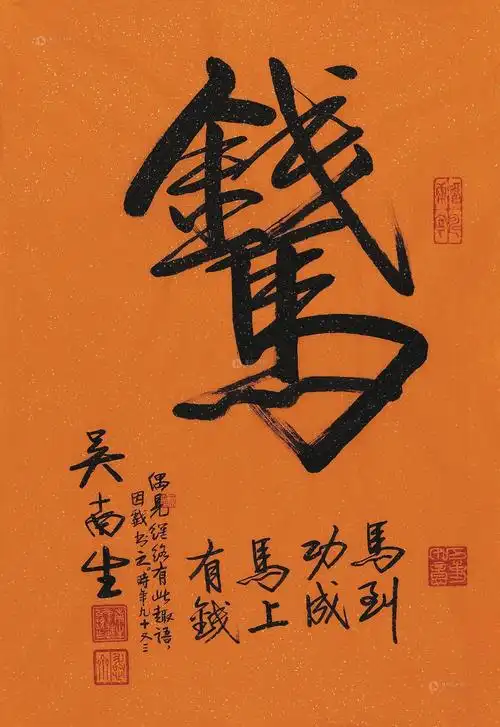 錢馬
馬到
功成
馬上
有錢
偶見網絡有此趣語，
因戲書之。時年九十又三
吳南生